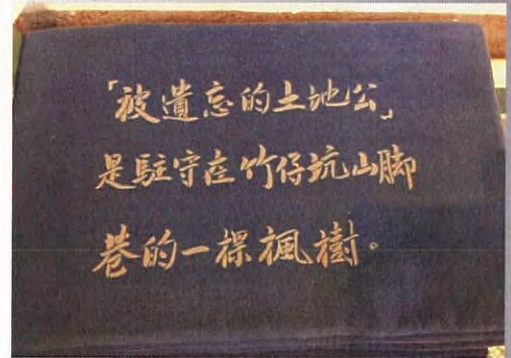 「被遺忘的土地公」
是駐守在竹仔坑山腳
巷的一棵楓樹。